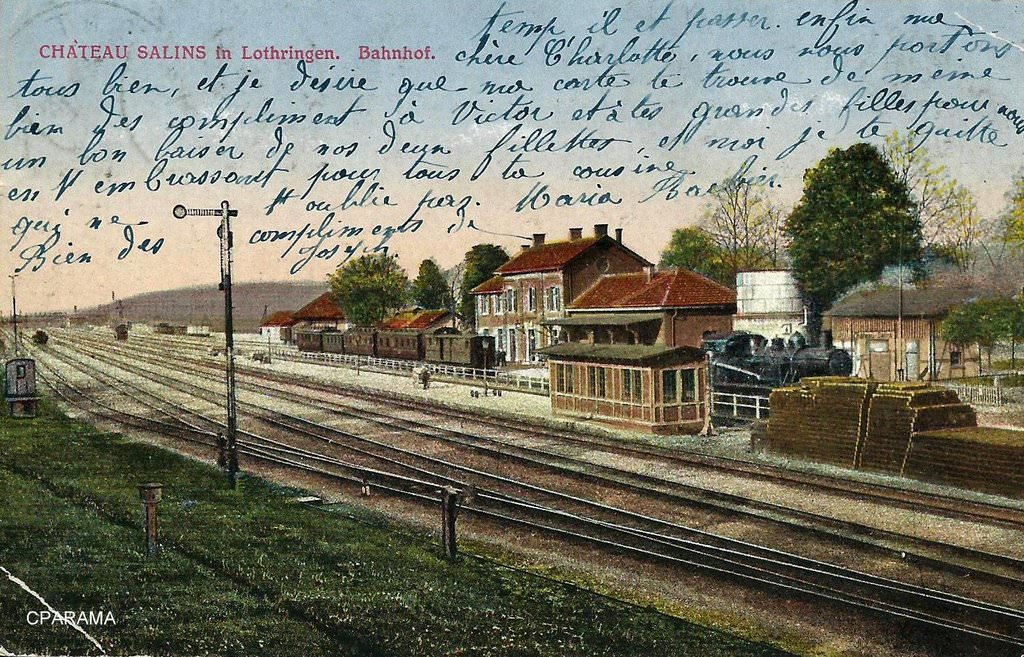 CHÂTEAU SALINS in Lothringen. Bahnhof.
temp il et passer. enfin ma
chère Charlotte, nous nous portons
tous bien, et je désire que ma carte te trouve de meine
bien des compliment à Victor et à tes grandes filles pour nous
un bon baiser de nos deux fillettes, et moi je te quitte
en t'embrassant pour tous ta cousine
qui ne t'oublie pas. Maria
Bien des compliments de
Joseph
CPARAMA